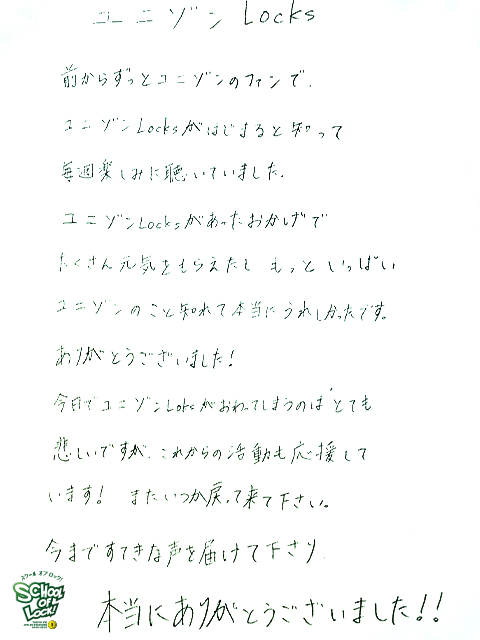 ユニゾン Locks
前からずっとユニゾンのファンで、
ユニゾンLocksがはじまると知って
毎週楽しみに聴いていました。
ユニゾンLocksがあったおかげで
たくさん元気をもらえたし もっといっぱい
ユニゾンのこと知れて本当にうれしかったです。
ありがとうございました!
今日でユニゾンLocksがおわってしまうのは、とても
悲しいですが、これからの活動も応援して
います! またいつか戻って来て下さい。
今まですてきな声を届けて下さり、
本当にありがとうございました!!
スクール オブ ロック!
SCHOOL OF LOCK!